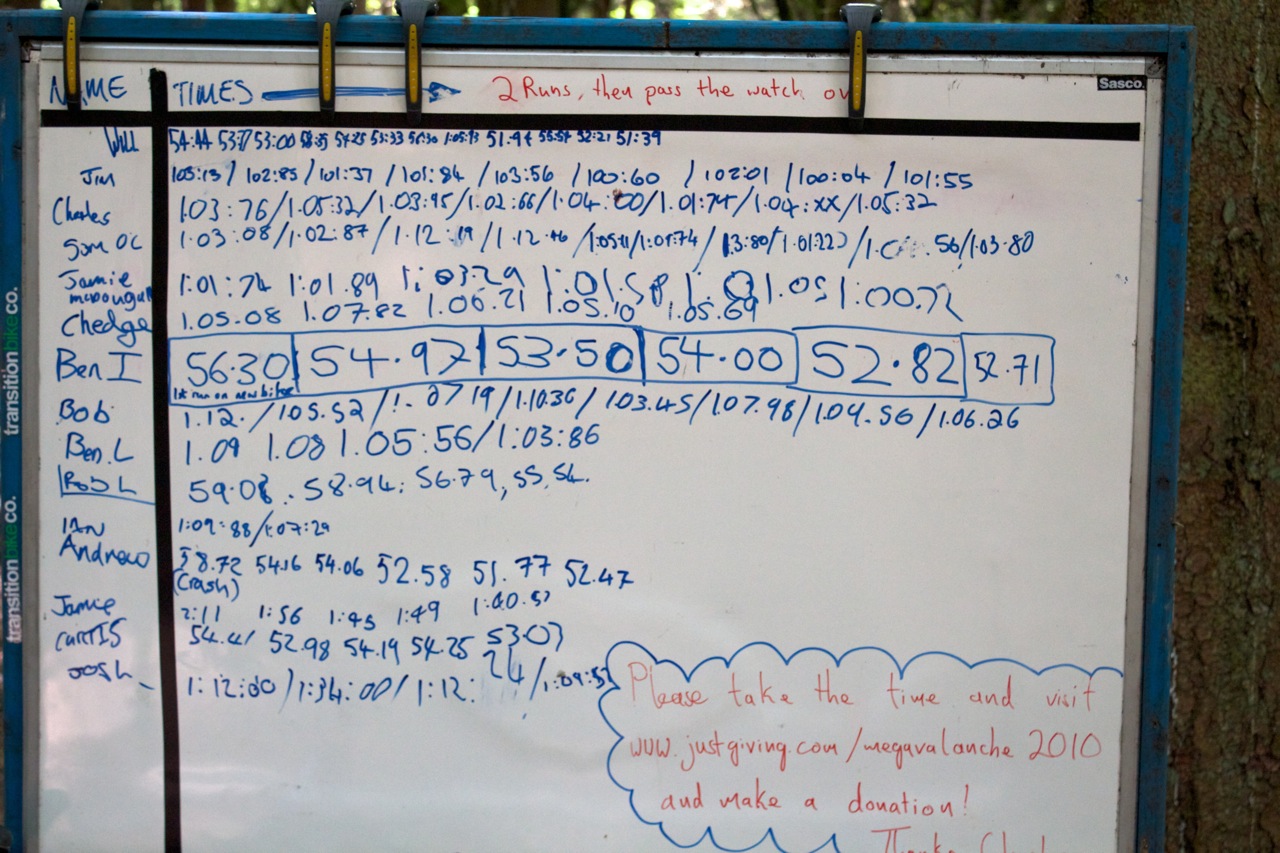 NAME TIMES 2 Runs, then pass the watch on
Sasco.
Will 54:44 53:77 53:00 54:25 53:33 56:30 1:05:13 51.94 52:21 51:39
Jim 103:13 / 102:85 / 101:37 / 101:84 / 103:56 / 100:60 / 102:01 / 100:04 / 101:55
Charles 1.03:76/1.05:32/1.03:95/1.02:66/1.04:00/1.01:74/1.04:XX/1.05:32
Som OC 1.03:08/1.02:87/1.12:19/1.12.46 /1.01:74/ 13:80/1.01:22 56/1.03.80
Jamie mcdougall 1:01:74 1:01.89 1:03:29 1:01.58 1.05 1:00.72
Chedge 1.05.08 1.07.82 1.06.21 1.05.10 1.05.69
Ben I 56.30 54.97 53.50 54.00 52.82 52.71
1st run on new bike
Bob 1.12. / 105.52 / 1. 07 19/1.10.36/ 1.03.45/1.07.98/1.04.56/1.06.26
Ben.L 1.09 1.08 1.05:56/1:03:86
Rob L 59.08. 58.94. 56.79, 55.54.
IAN 1:09:88/1:07:29
Andrew 58.72 54.16 54.06 52.58 51.77 52.47
(Crash)
Jamie 2:11 1:56 1:45 1:49 1:40.57
CURTIS 54.41 52.98 54.19 54.25 53.03
Josh 1:12:00/1:34:00/1:12:24/1:09:55
Please take the time and visit
www.justgiving.com/megavalanche 2010
and make a donation!
Thanks
transitionbikeco.
transitionbikeco.